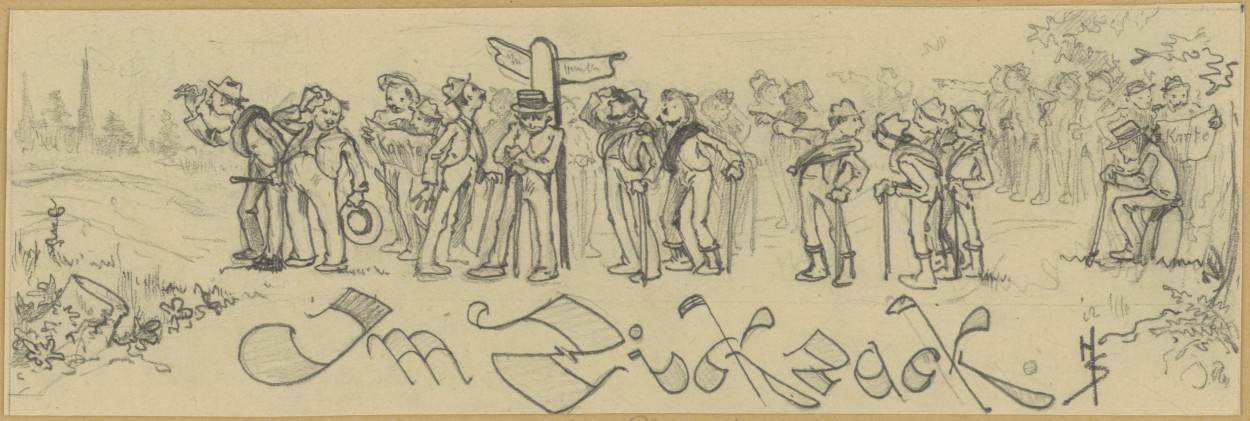 Karte
Karte
Im Zickzack.
HS